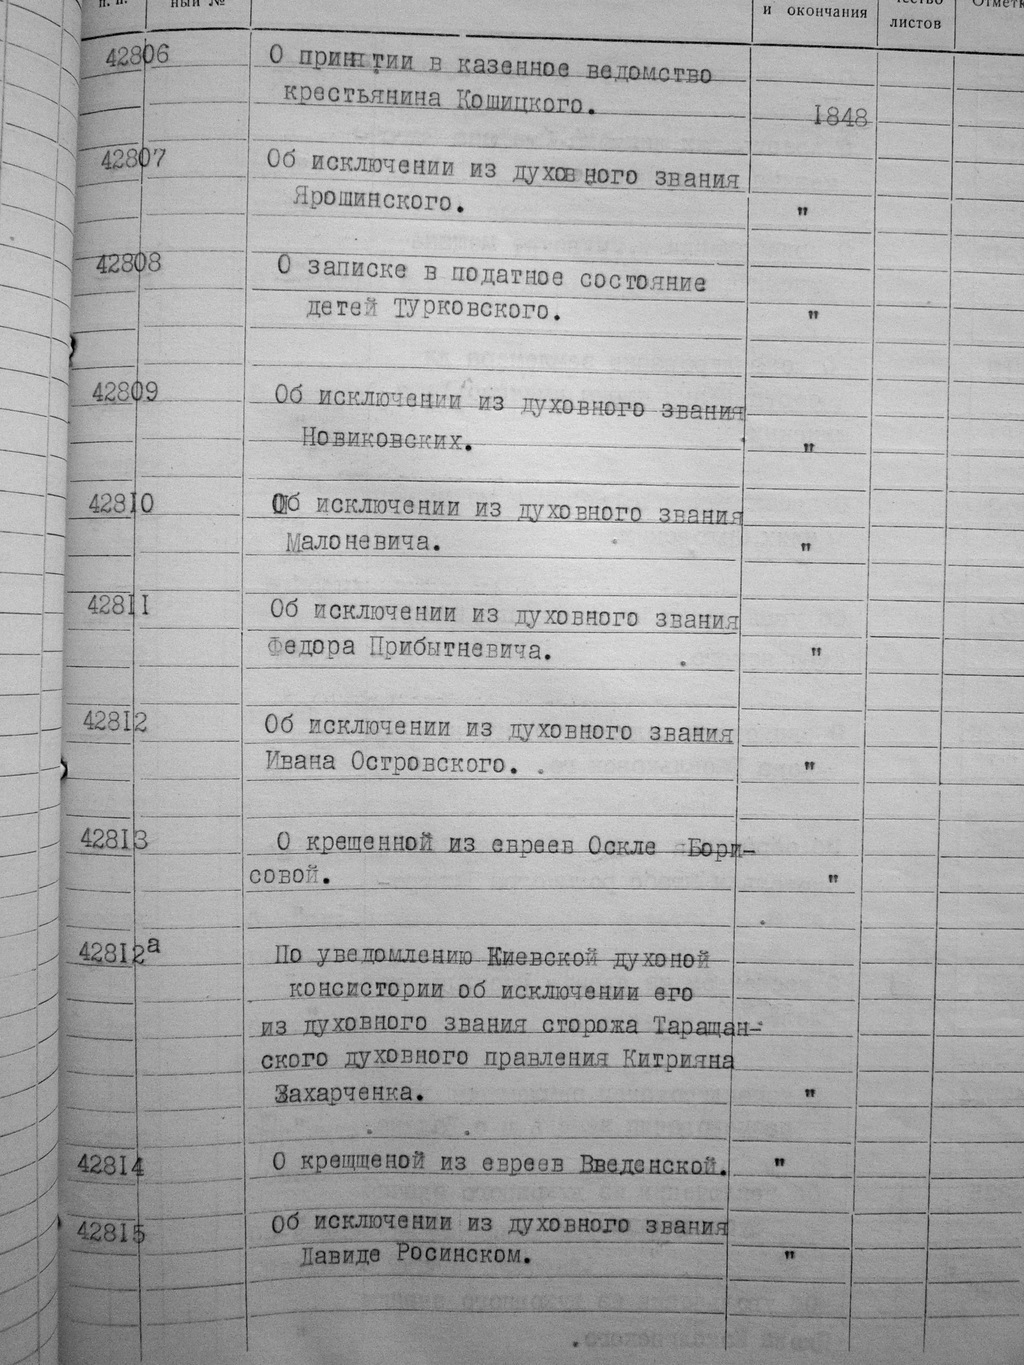 п. п.
ный №
и окончания
чество
листов
Отметк
42806 О принятии в казенное ведомство
крестьянина Кошицкого. 1848
42807 Об исключении из духовного звания
Ярошинского. "
42808 О записке в податное состояние
детей Турковского. "
42809 Об исключении из духовного звания
Новиковских. "
42810 Об исключении из духовного звания
Малоневича. "
42811 Об исключении из духовного звания
Федора Прибытневича. "
42812 Об исключении из духовного звания
Ивана Островского. "
42813 О крещенной из евреев Оскле Бори-
совой. "
42812а По уведомлению Киевской духоной
консистории об исключении его
из духовного звания сторожа Таращан-
ского духовного правления Китрияна
Захарченка. "
42814 О крещщеной из евреев Введенской. "
42815 Об исключении из духовного звания
Давиде Росинском. "